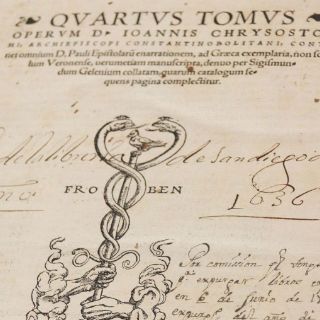 QVARTVS TOMVS
OPERVM D. IOANNIS CHRYSOSTO
MI, ARCHIEPISCOPI CONSTANTINOPOLITANI, CONT
net omnium D. Pauli Epistolarū enarrationem, ad Græca exemplaria, non so
lum Veronense, uerumetiam manuscripta, denuo per Sigismun
dum Gelenium collatam, quarum catalogum se-
quens pagina complectitur.
de la libreria de san diego
FRO BEN
1636
Por comission el
expurgar libros
en 6 de Junio de 1
año de